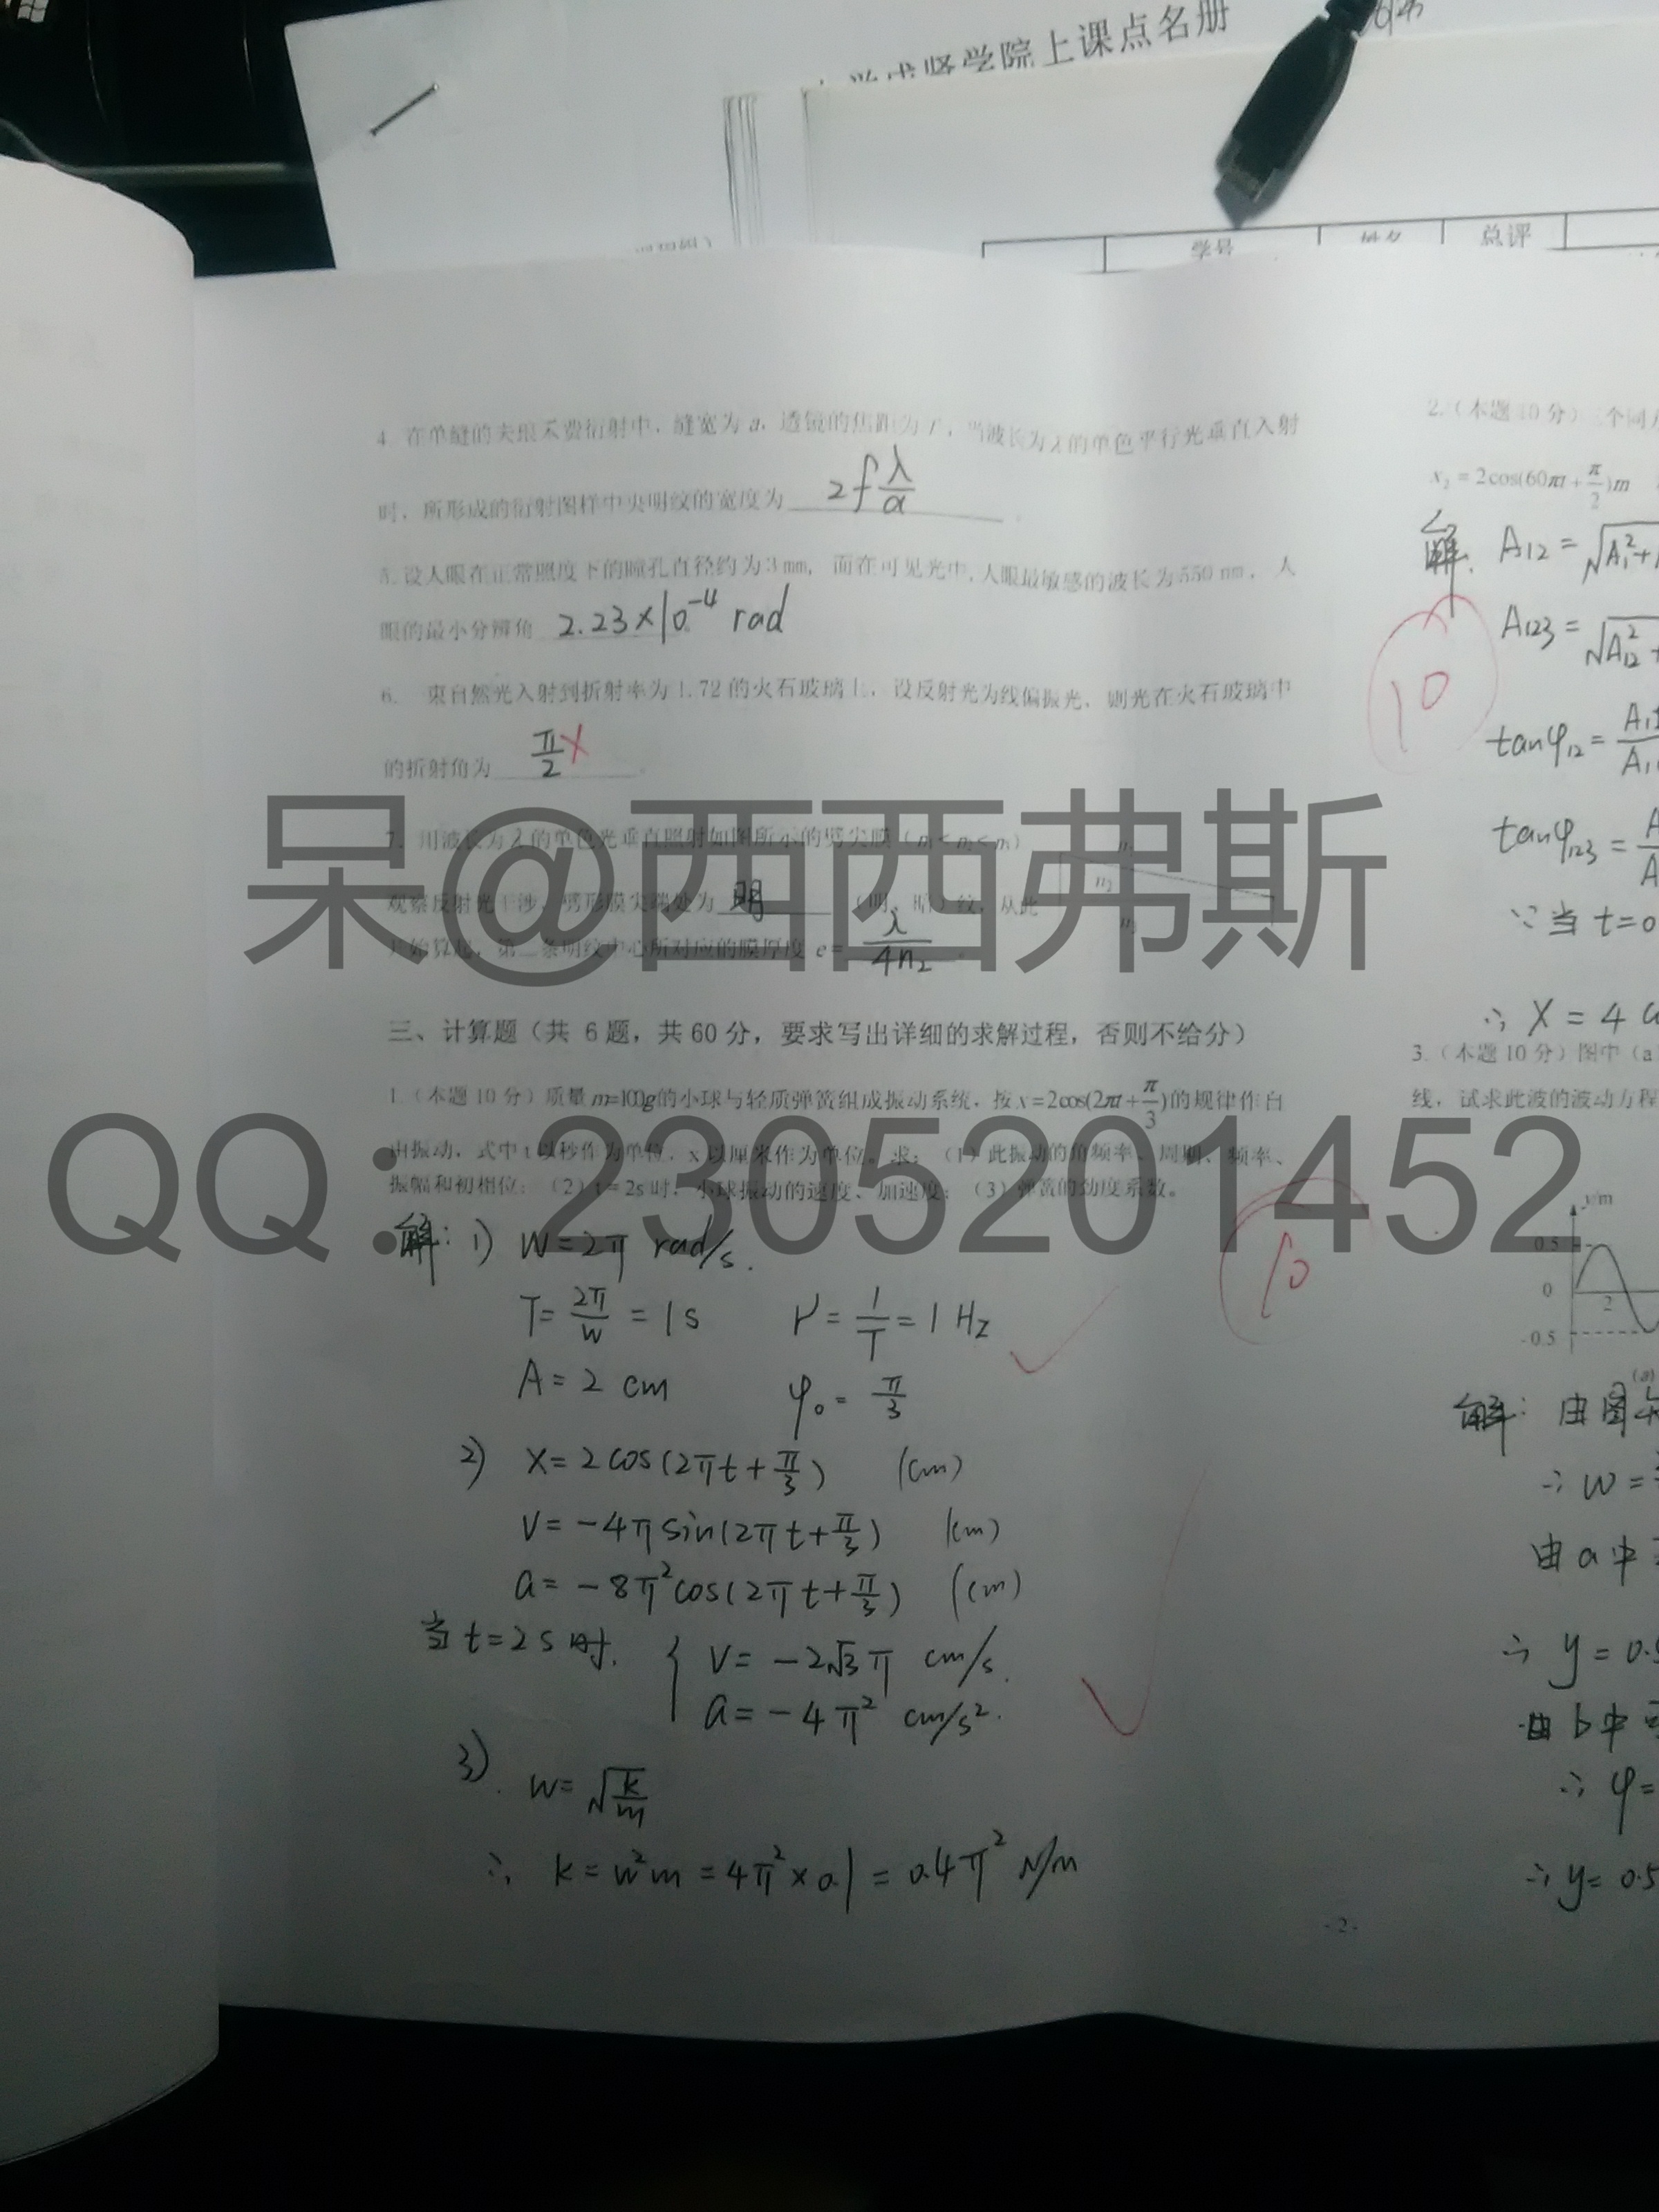 学院上课点名册
学号 姓名 总评
4. 在单缝的夫琅禾费衍射中，缝宽为 a，透镜的焦距为 f，当波长为λ的单色平行光垂直入射
时，所形成的衍射图样中央明纹的宽度为 2f λ/a 。
5. 设人眼在正常照度下的瞳孔直径约为3mm，而在可见光中,人眼最敏感的波长为550 nm，人
眼的最小分辨角 2.23×10⁻⁴ rad
6. 束自然光入射到折射率为 1.72 的火石玻璃上，设反射光为线偏振光，则光在火石玻璃中
的折射角为 π/2 ✗ 。
7. 用波长为λ的单色光垂直照射如图所示的劈尖膜（n₁<n₂<n₃）
观察反射光干涉，劈形膜尖端处为 明 （明、暗）纹，从此
开始算起，第二条明纹中心所对应的膜厚度 e= λ/4n₂ 。
n₂
呆@西西弗斯
三、计算题（共 6题，共60分，要求写出详细的求解过程，否则不给分）
1.（本题10分）质量m=100g的小球与轻质弹簧组成振动系统，按x=2cos(2πt+π/3)的规律作自
由振动，式中t以秒作为单位，x以厘米作为单位。求：（1）此振动的角频率、周期、频率、
振幅和初相位；（2）t=2s时，小球振动的速度、加速度；（3）弹簧的劲度系数。
QQ：2305201452
10
解: 1) W=2π rad/s.
T=2π/W=1s ν=1/T=1Hz
A=2 cm φ₀=π/3
2) x=2cos(2πt+π/3) (cm)
V=-4πsin(2πt+π/3) (cm)
a=-8π²cos(2πt+π/3) (cm)
当t=2s时. { V=-2√3π cm/s.
a=-4π² cm/s².
3). w=√(k/m)
∴ k=w²m=4π²×0.1=0.4π² N/m
-2-
2.（本题10分）三个同方
x₂=2cos(60πt+π/2)m
解. A₁₂=√A₁²+
10
A₁₂₃=√A₁₂²+
tanφ₁₂=A₁
tanφ₁₂₃=A
∵当t=0
∴ X=4
3.（本题10分）图中（a
线，试求此波的波动方程
y/m
0.5
0
2
-0.5
(a)
解: 由图
∴ w=
由a中
∴ y=0.5
由b中
∴ φ=
∴ y=0.5